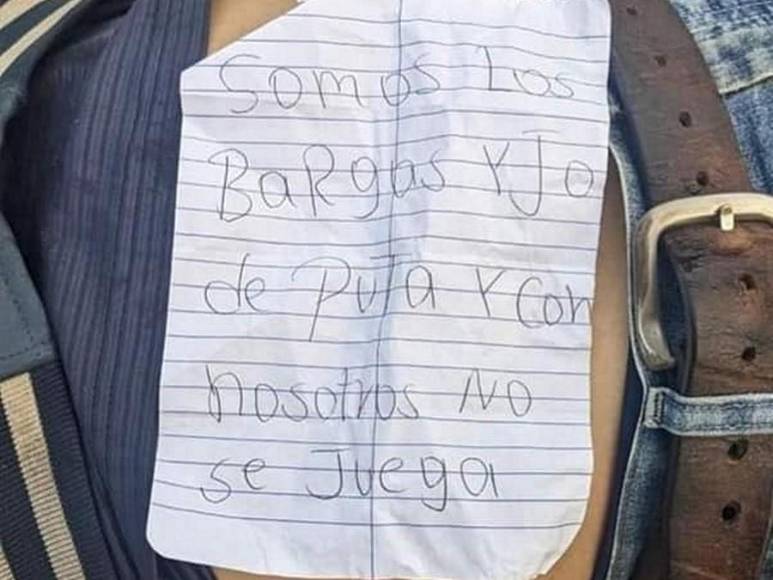 Somos Los
BaRgas YJo
de PuTa Y Con
nosotros No
se Juega